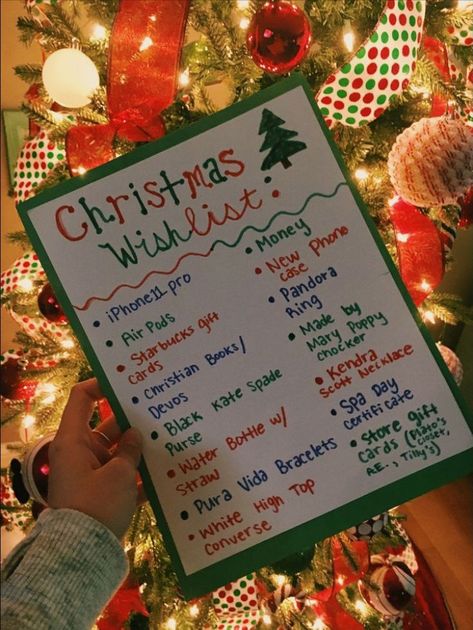 Christmas
Wishlist:
• iPhone 11 pro
• Air Pods
• Starbucks gift
cards
• Christian Books/
Devos
• Black Kate Spade
Purse
• Water Bottle w/
Straw
• Pura Vida Bracelets
• White High Top
Converse
• Money
• New Phone
case
• Pandora
Ring
• Made by
Mary Poppy
chocker
• Kendra
Scott Necklace
• Spa Day
certificate
• Store gift
cards (Plato's
closet,
A.E., Tilly's)